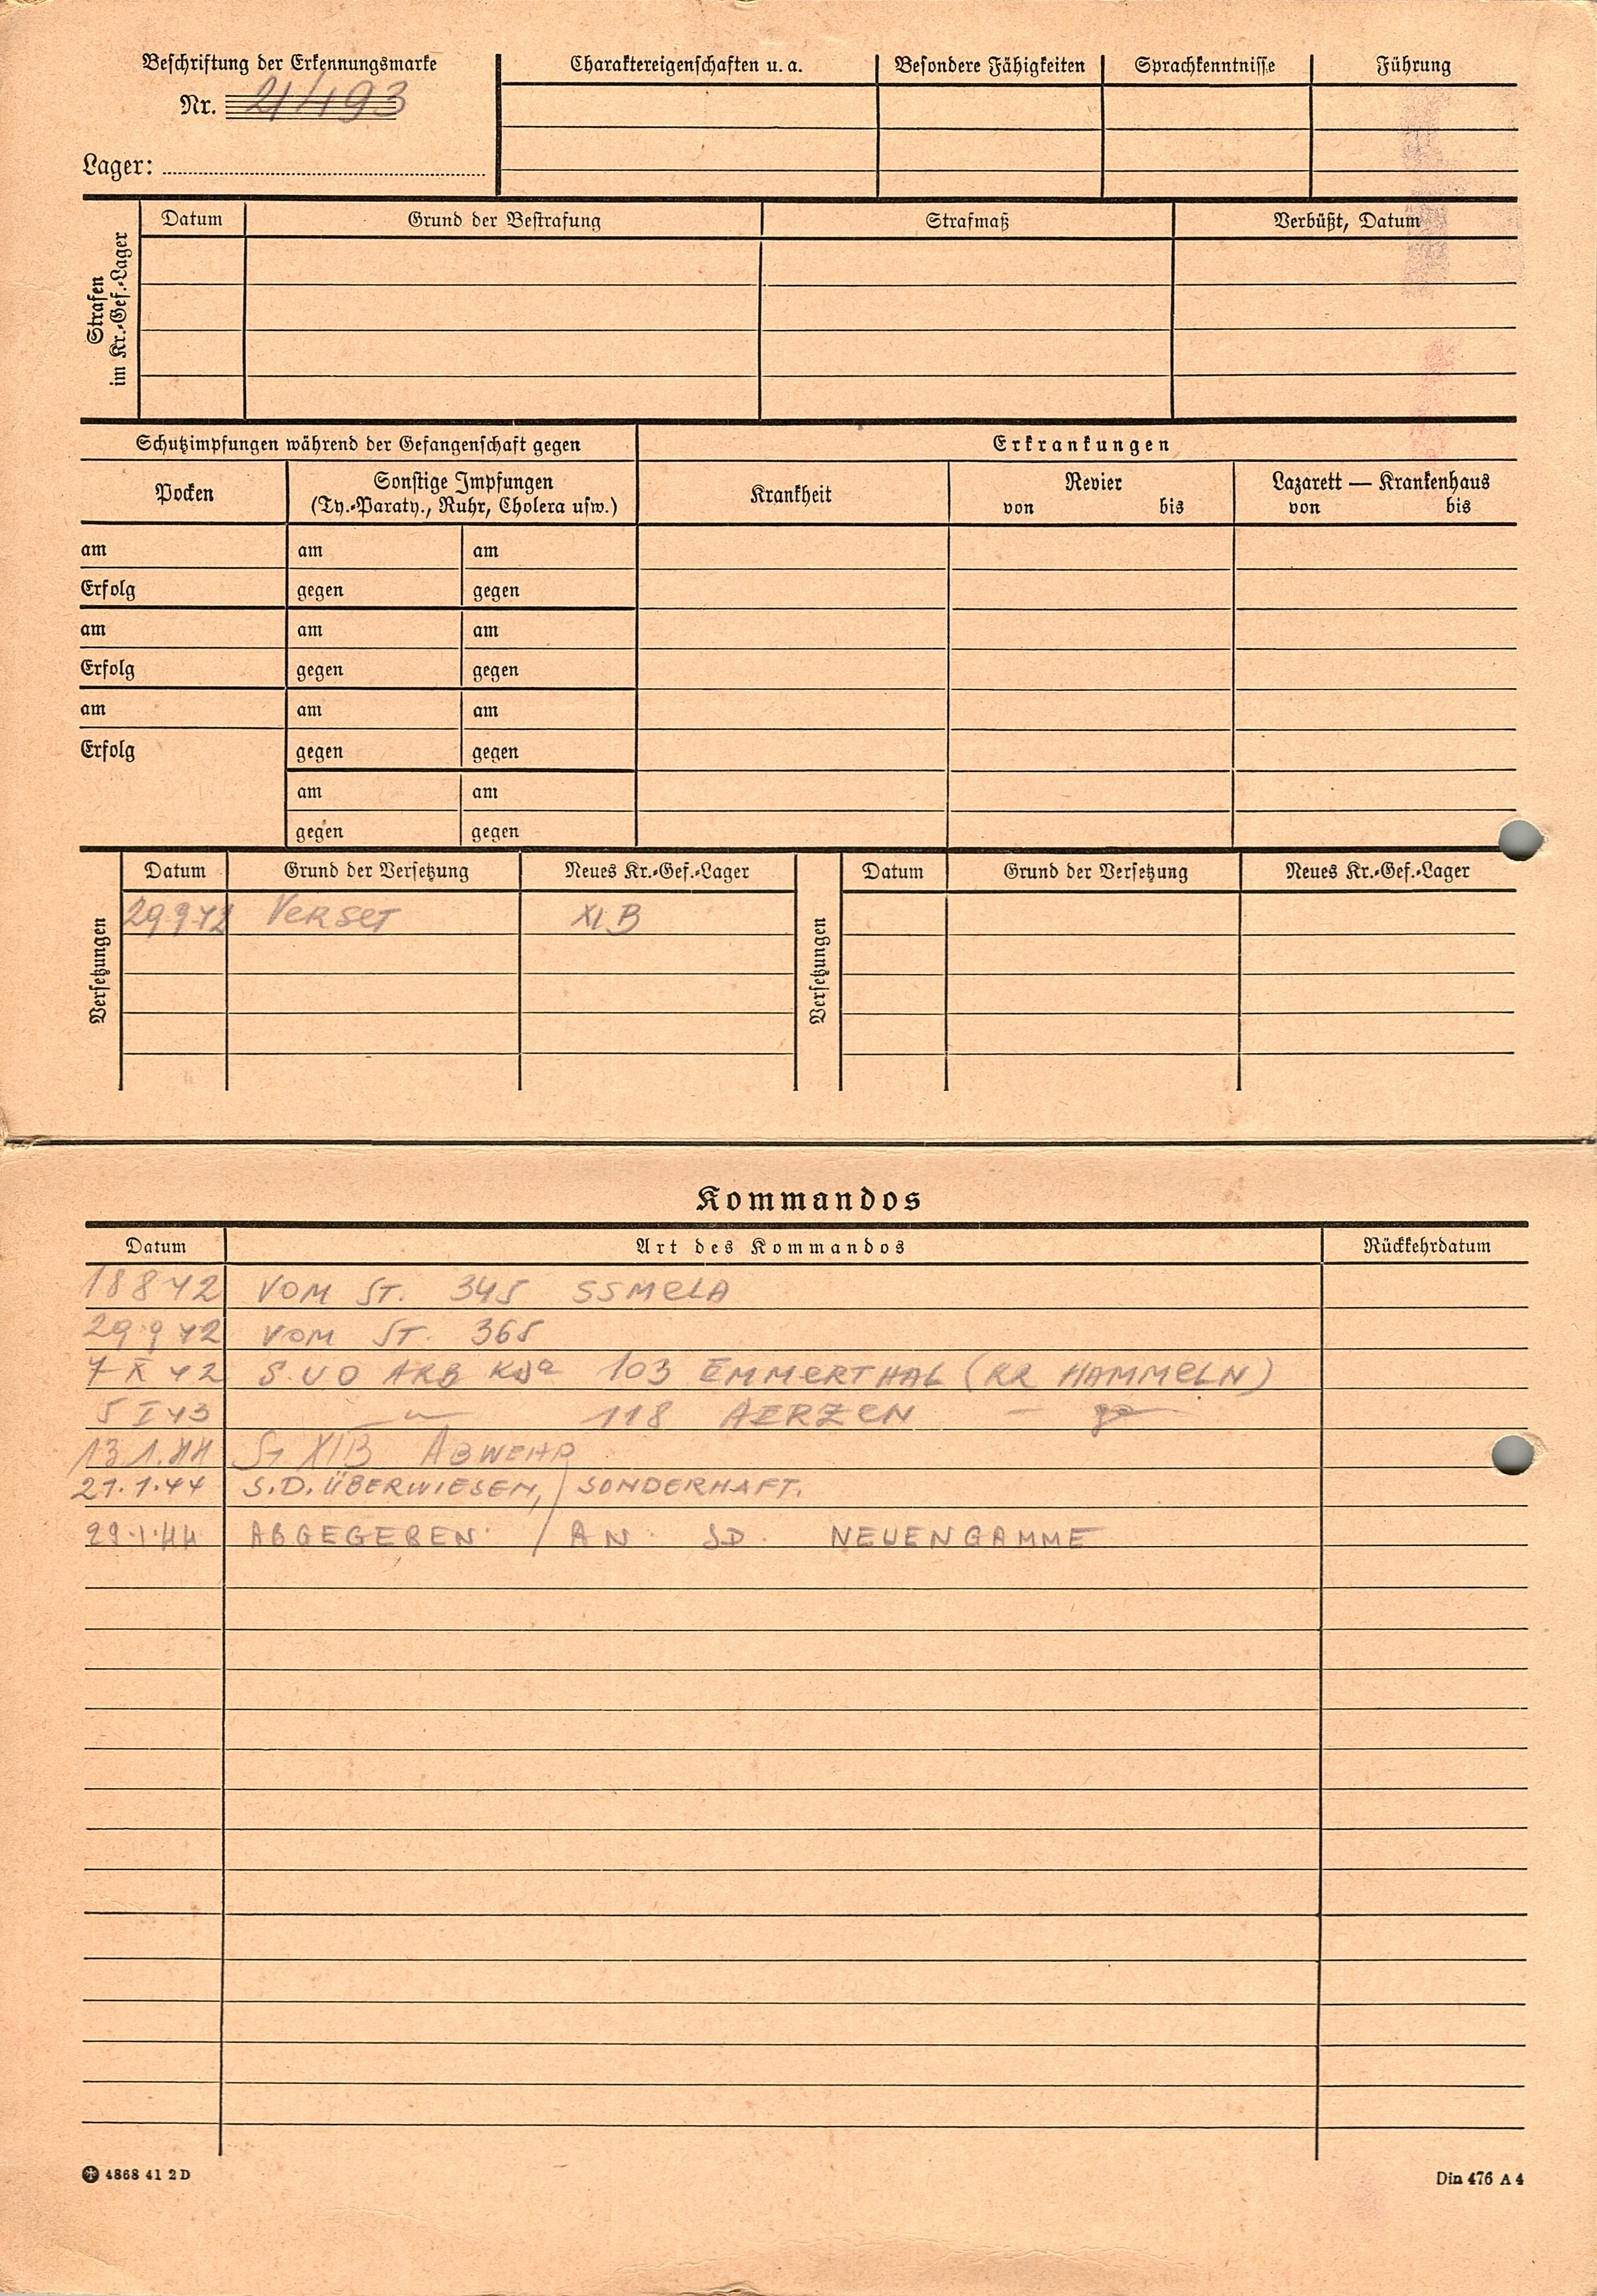 Beschriftung der Erkennungsmarke
Nr.
Lager:
Charaktereigenschaften u. a.
Besondere Fähigkeiten
Sprachkenntnisse
Führung
Strafen
im Kr.-Gef.-Lager
Datum
Grund der Bestrafung
Strafmaß
Verbüßt, Datum
Schutzimpfungen während der Gefangenschaft gegen
Erkrankungen
Pocken
Sonstige Impfungen
(Ty.-Paraty., Ruhr, Cholera usw.)
Krankheit
Revier
von bis
Lazarett — Krankenhaus
von bis
am am am
Erfolg gegen gegen
am am am
Erfolg gegen gegen
am am am
Erfolg gegen gegen
am am
gegen gegen
Versetzungen
Datum Grund der Versetzung Neues Kr.-Gef.-Lager
29 9 42 VERSET XI B
Versetzungen
Datum Grund der Versetzung Neues Kr.-Gef.-Lager
Kommandos
Datum Art des Kommandos Rückkehrdatum
18 8 42 VOM ST. 345 SSMELA
29 9 42 VOM ST. 365
7 X 42 S.UO ARB Kdo 103 EMMERTHAL (KR HAMMELN)
5 I 43 118 AERZEN
13.1.44 St XIB ABWEHR
21.1.44 S.D. ÜBERWIESEN, SONDERHAFT.
29.1.44 ABGEGEBEN / AN SD. NEUENGAMME
4868 41 2 D
Din 476 A 4